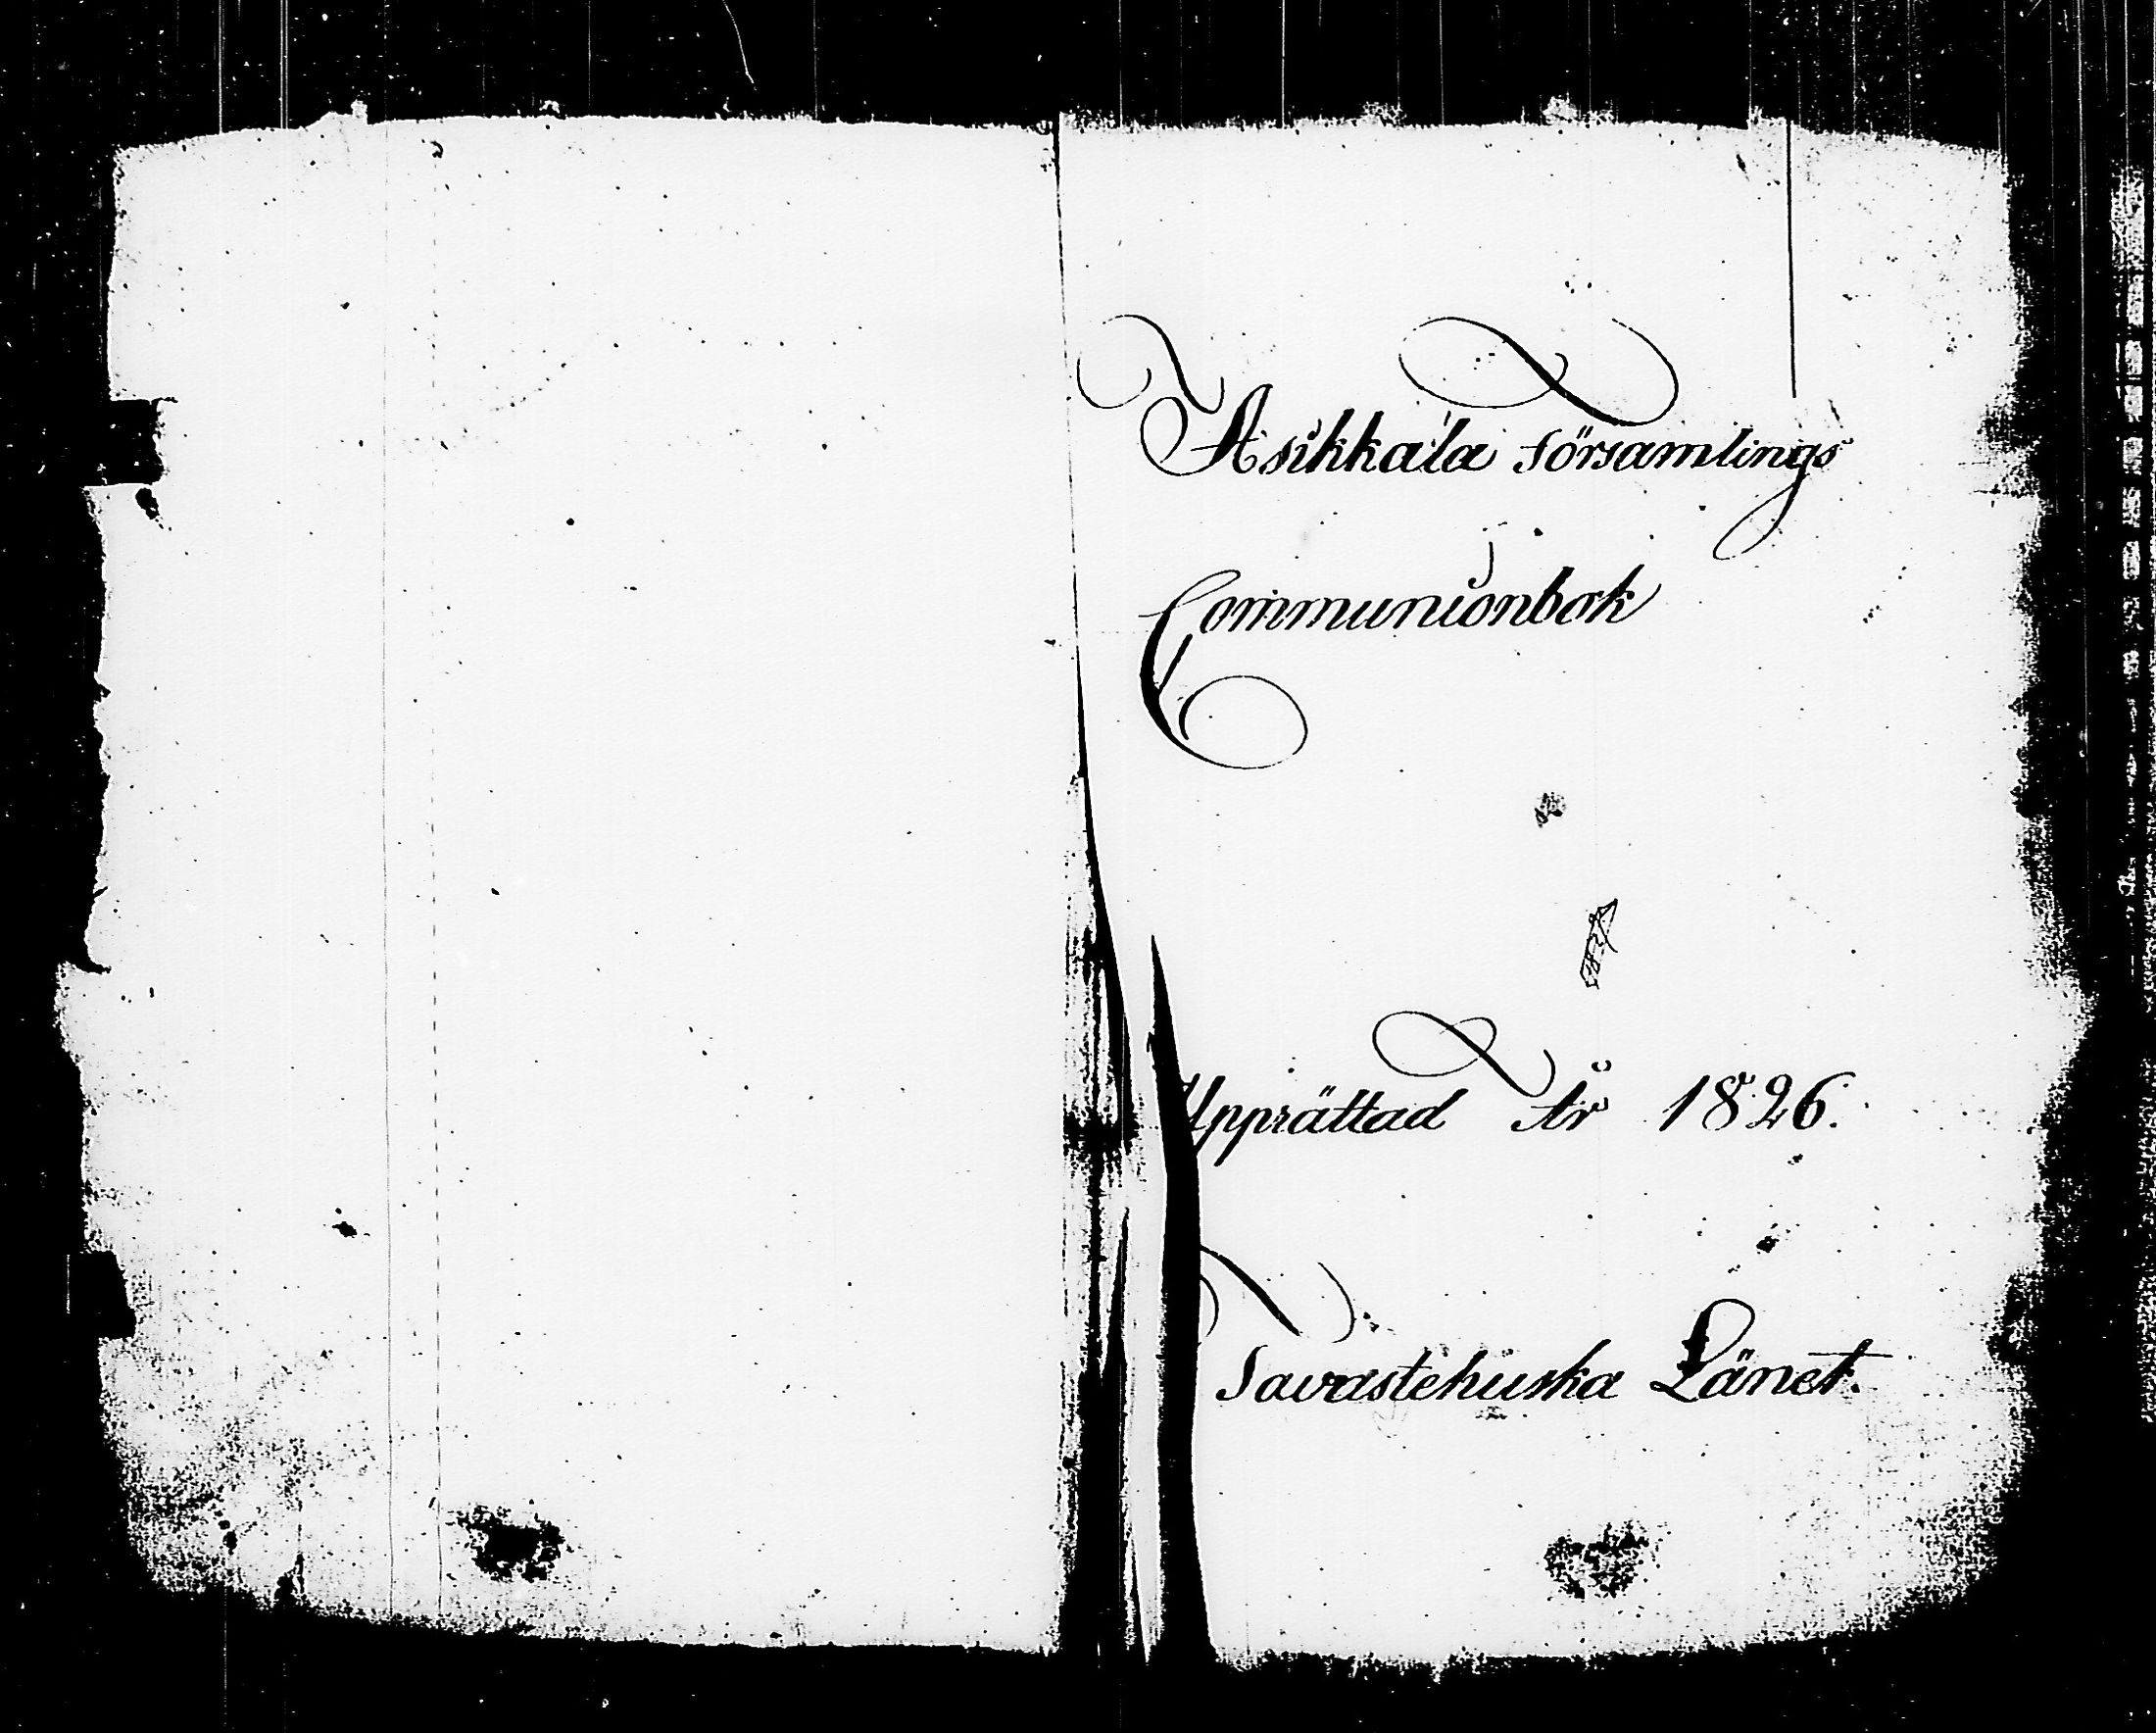 Asikkala Församlings
Communionbok
Upprättad År 1826.
Tavastehuska Länet.